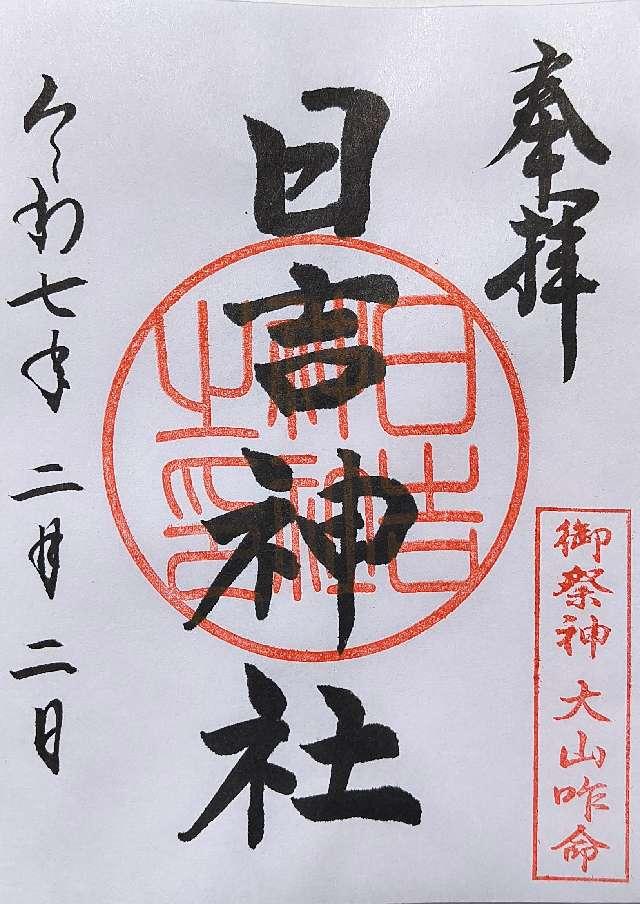 奉拝
御祭神 大山咋命
日吉神社
日吉神社之印
令和七年 二月 二日